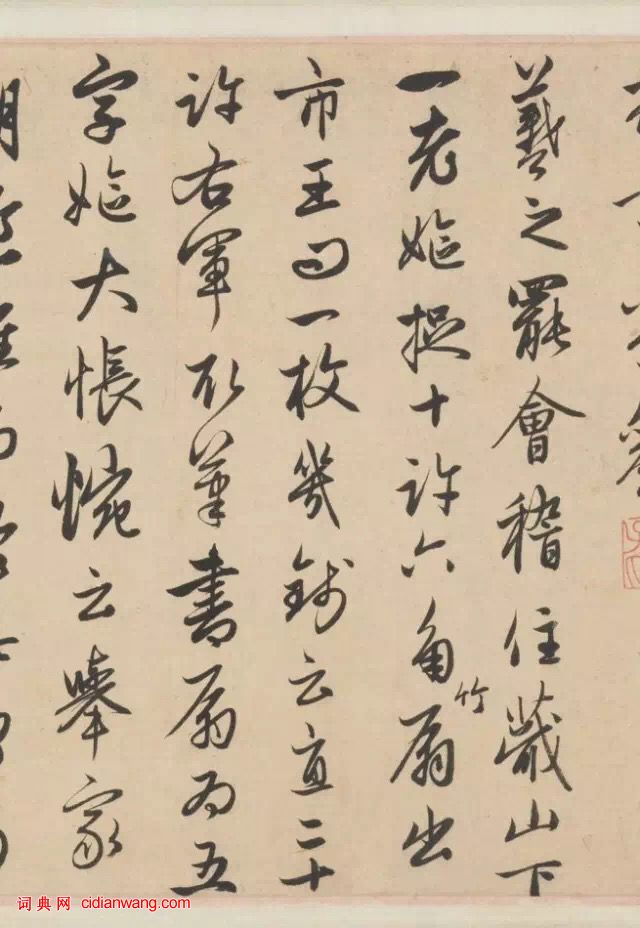 羲之罷會稽住蕺山下
一老嫗捉十許六角竹扇出
市王曰一枚幾錢云直二十
許右軍取筆書扇為五
字嫗大悵惋云舉家
词典网 cidianwang.com